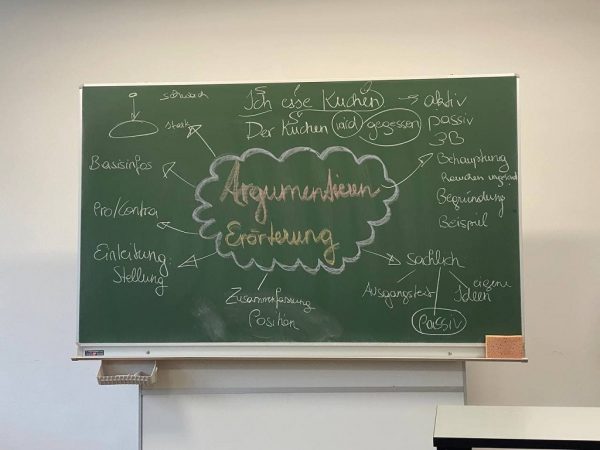 schwach
stark
Ich esse Kuchen → aktiv
Der Kuchen wird gegessen passiv
3B
Behauptung
Rauchen ungesund
Begründung
Beispiel
Basisinfos
Pro/Contra
Einleitung:
Stellung
Argumentieren
Erörterung
Zusammenfassung
Position
sachlich
Ausgangstext
eigene
Ideen
passiv